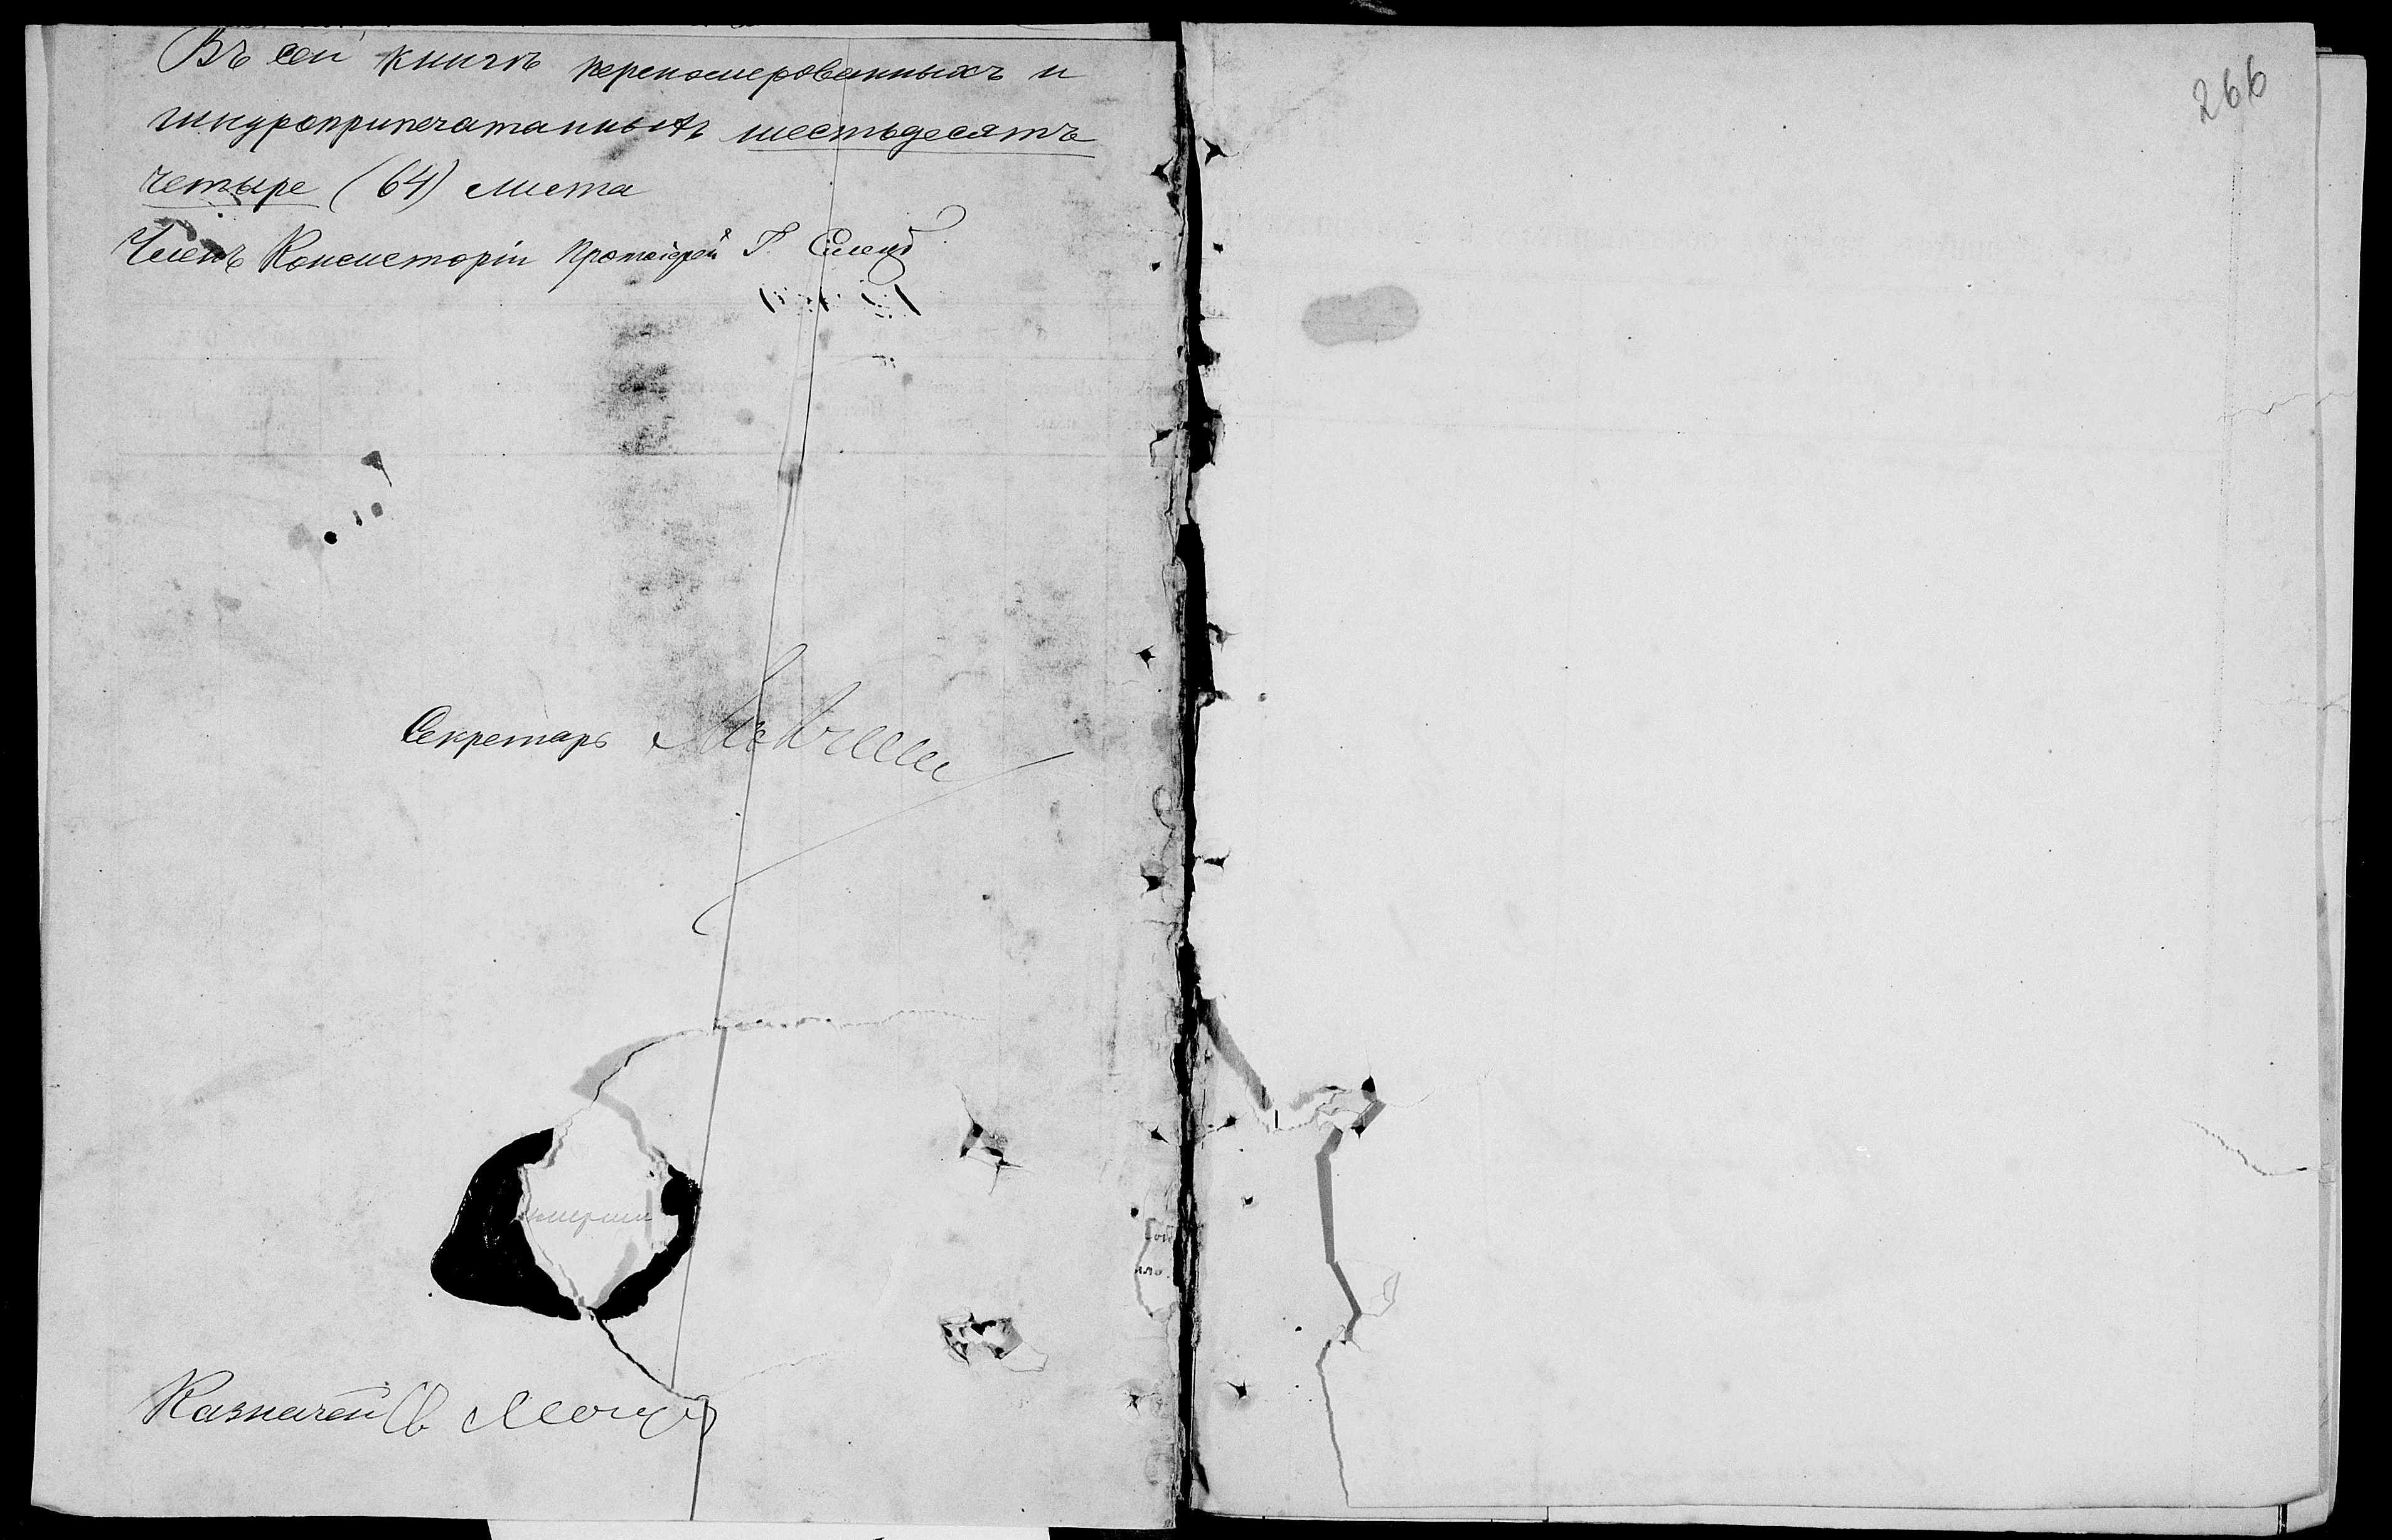 Въ сей книгѣ переномерованныхъ и
шнуроприпечатанныхъ шестьдесятъ
четыре (64) листа
Членъ Консисторіи Протоіерей Г.
Секретарь
Казначей
266